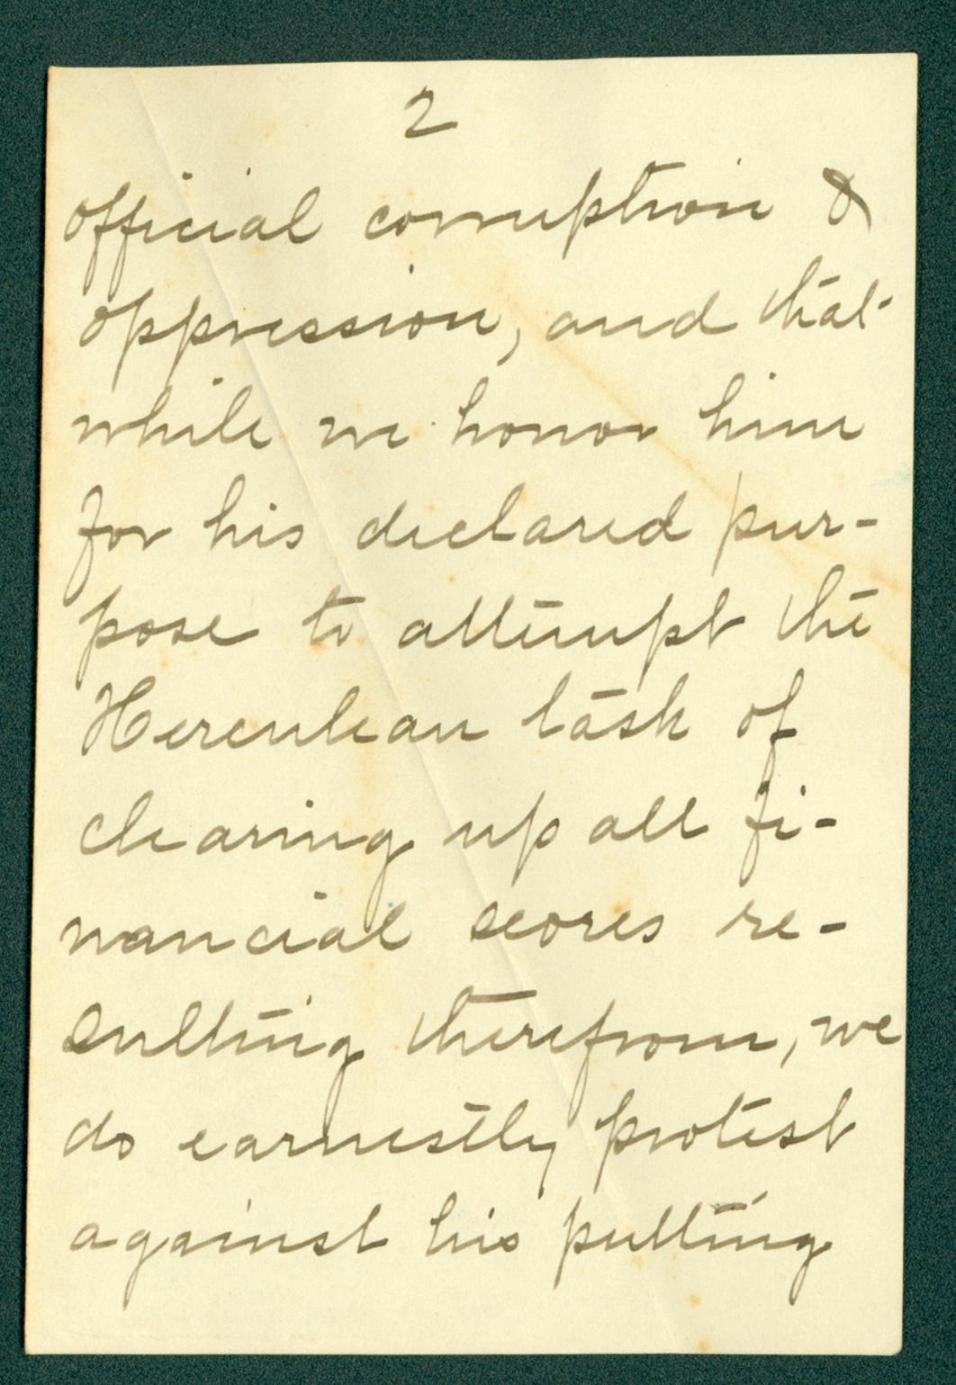 2
official corruption &
oppression, and that
while we honor him
for his declared pur-
pose to attempt the
Herculean task of
clearing up all fi-
nancial scores re-
sulting therefrom, we
do earnestly protest
against his putting